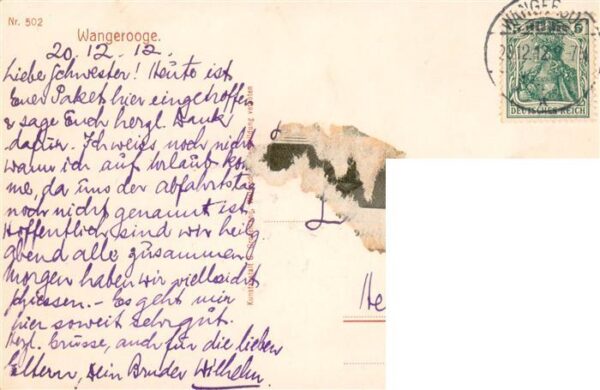 Nr. 502
Wangerooge.
20.12.12.
Liebe Schwester! Heute ist
Euer Paket hier eingetroffen
& sage Euch herzl. Dank
dafür. Ich weiss noch nicht
wann ich auf Urlaub kom
me, da uns der Abfahrtstag
noch nicht genannt ist.
Hoffentlich sind wir heilg
abend alle zusammen
Morgen haben wir vielleicht
schiessen. - Es geht mir
hier soweit sehr gut.
Herzl. Grüsse, auch für die lieben
Eltern, Dein Bruder Wilhelm.
WANGEROOG
12.12
DEUTSCHES REICH
He